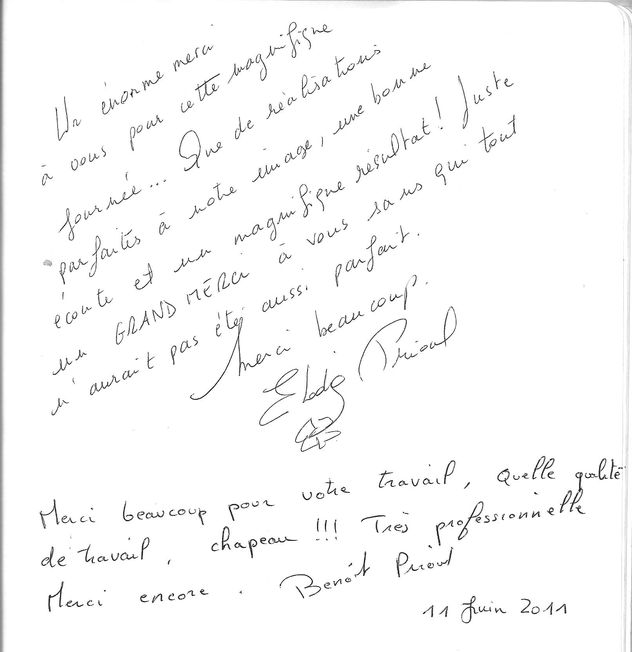 Un énorme merci
à vous pour cette magnifique
journée... Que de réalisations
parfaites à notre image, une bonne
écoute et un magnifique résultat! Juste
un GRAND MERCI à vous sans qui tout
n'aurait pas été aussi parfait.
Merci beaucoup.
Elodie Prioul
Merci beaucoup pour votre travail, quelle qualité
de travail, chapeau !!! Très professionnelle
Merci encore. Benoît Prioul
11 Juin 2011